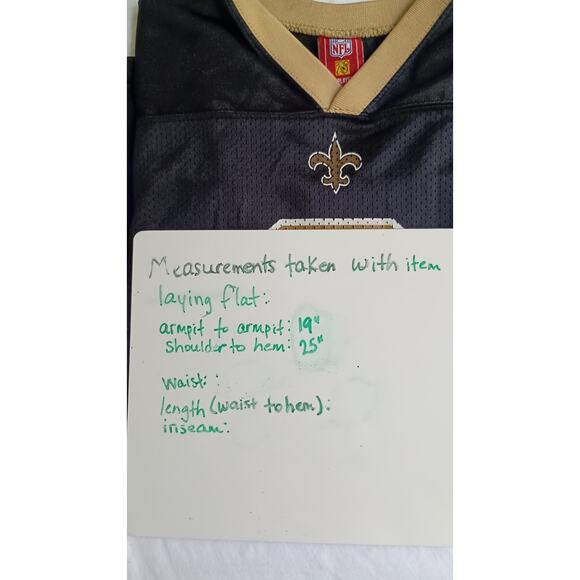 NFL
Measurements taken with item
laying flat:
armpit to armpit: 19"
shoulder to hem: 25"
waist: :
length (waist to hem):
inseam: